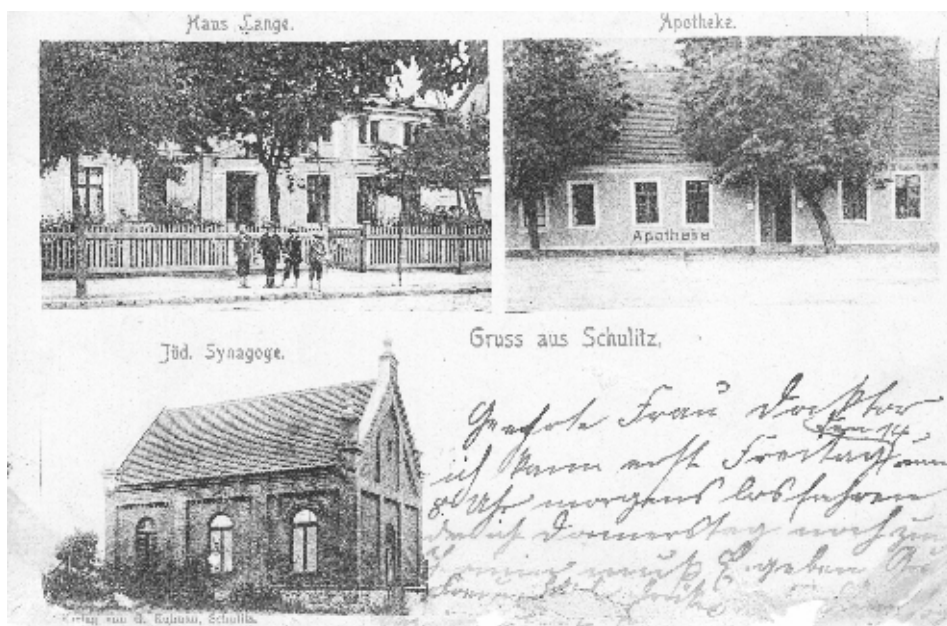 Haus Lange.
Apotheke.
Apotheke
Gruss aus Schulitz,
Jüd. Synagoge.
Geehrte Frau Doktor
den 14.
ich kann erst Freitag um
8 Uhr morgens losfahren
da ich Donnerstag noch zu
muß
Verlag von Schulitz.